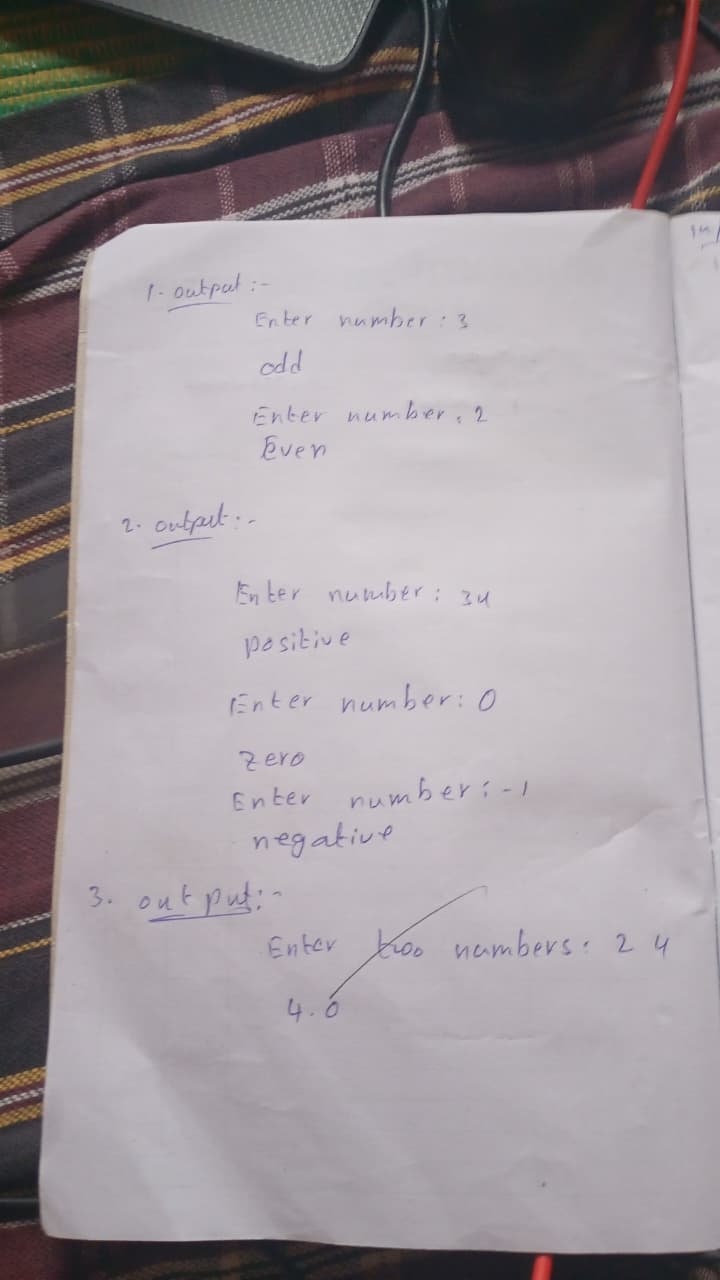 1. output :-
Enter number : 3
odd
Enter number : 2
Even
2. output :-
Enter number : 34
positive
Enter number : 0
zero
Enter number : -1
negative
3. output :-
Enter two numbers : 2 4
4.0